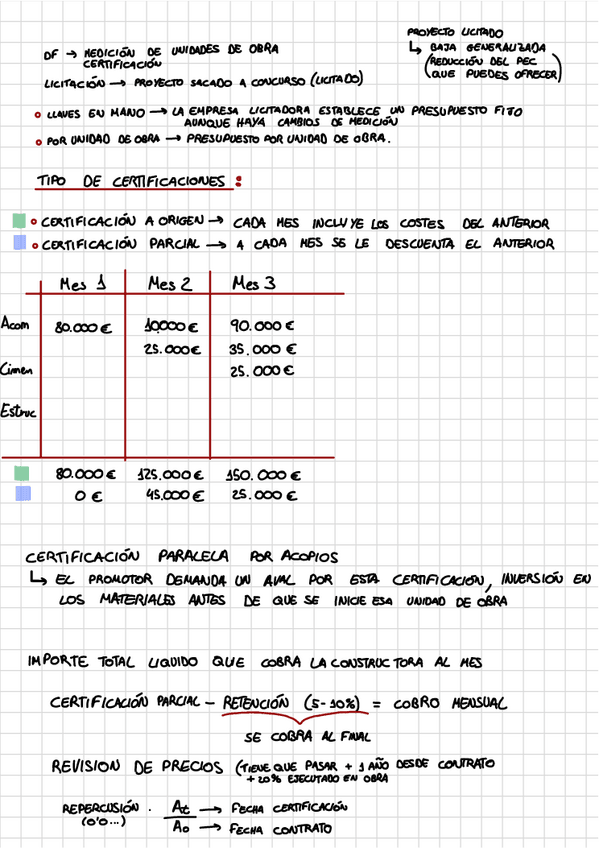 PROYECTO LICITADO
↳ BAJA GENERALIZADA
(REDUCCIÓN DEL PEC
QUE PUEDES OFRECER)
DF → MEDICIÓN DE UNIDADES DE OBRA
CERTIFICACIÓN
LICITACIÓN → PROYECTO SACADO A CONCURSO (LICITADO)
LLAVES EN MANO → LA EMPRESA LICITADORA ESTABLECE UN PRESUPUESTO FIJO
AUNQUE HAYA CAMBIOS DE MEDICIÓN
POR UNIDAD DE OBRA → PRESUPUESTO POR UNIDAD DE OBRA.
TIPO DE CERTIFICACIONES:
CERTIFICACIÓN A ORIGEN → CADA MES INCLUYE LOS COSTES DEL ANTERIOR
CERTIFICACIÓN PARCIAL → A CADA MES SE LE DESCUENTA EL ANTERIOR
Mes 1 Mes 2 Mes 3
Acom 80.000 € 10.000 € 90.000 €
25.000 € 35.000 €
Cimen 25.000 €
Estruc
80.000 € 125.000 € 150.000 €
0 € 45.000 € 25.000 €
CERTIFICACIÓN PARALELA POR ACOPIOS
↳ EL PROMOTOR DEMANDA UN AVAL POR ESTA CERTIFICACIÓN, INVERSIÓN EN
LOS MATERIALES ANTES DE QUE SE INICIE ESA UNIDAD DE OBRA
IMPORTE TOTAL LIQUIDO QUE COBRA LA CONSTRUCTORA AL MES
CERTIFICACIÓN PARCIAL - RETENCIÓN (5-10%) = COBRO MENSUAL
SE COBRA AL FINAL
REVISION DE PRECIOS (TIENE QUE PASAR + 1 AÑO DESDE CONTRATO
+ 20% EJECUTADO EN OBRA
REPERCUSIÓN · At → FECHA CERTIFICACIÓN
(0'0...) Ao → FECHA CONTRATO